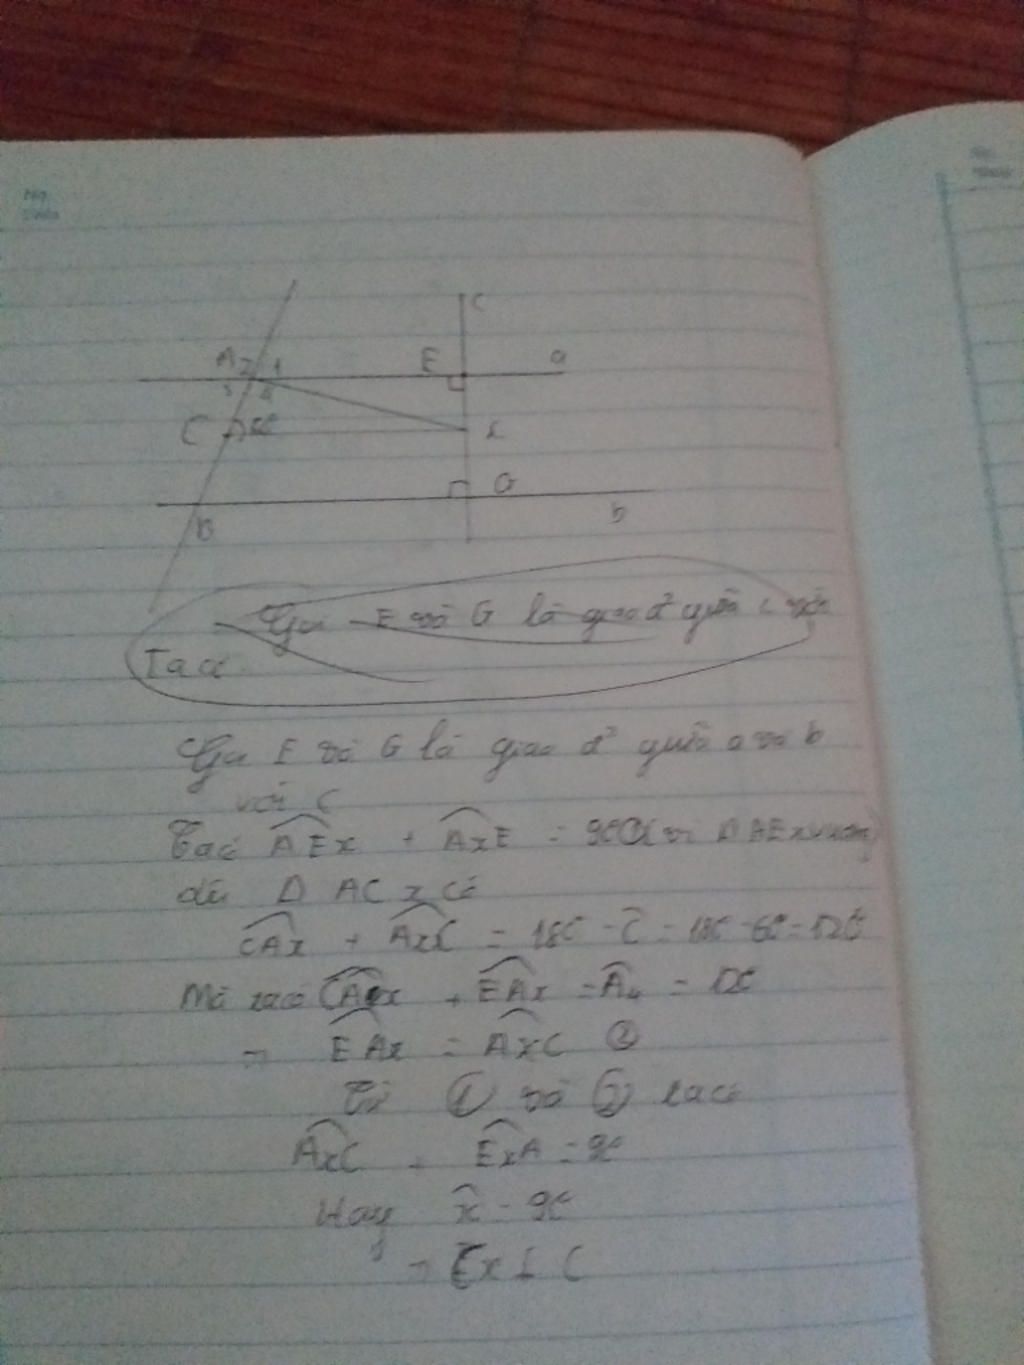 c
A 2 1
E
a
3 4
C
x
G
B
b
Gọi E và G là giao đ² giữa c với
Ta có
Gọi E và G là giao đ² giữa a và b
với c
Ta có AEx + AxE = 90 ① (vì Δ AEx vuông)
Δ ACx có
CAx + AxC = 180 - C = 180 - 60 = 120
Mà ta có CAx + EAx = A4 = 120
EAx = AxC ②
Từ ① và ② ta có
AxC + ExA = 90
Hay x = 90
Cx ⊥ C